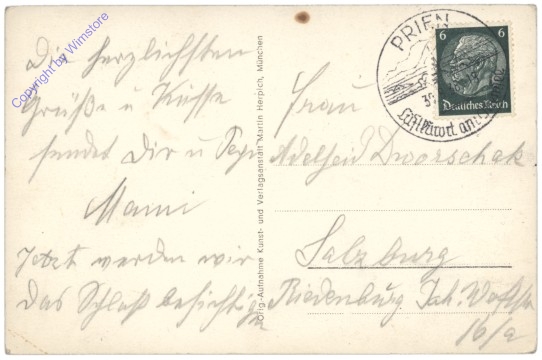 Die herzlichsten
Grüße u Küsse
sendet Dir u Pepi
Mami
Jetzt werden wir
das Schloß besichtigen
Orig.-Aufnahme Kunst- und Verlagsanstalt Martin Herpich, München
PRIEN
6 6
Deutsches Reich
39
Luftkurort am
Frau
Adelheid Dworschak
Salzburg
Riedenburg Joh. Wolfstr
16/a
Copyright by Wimstore